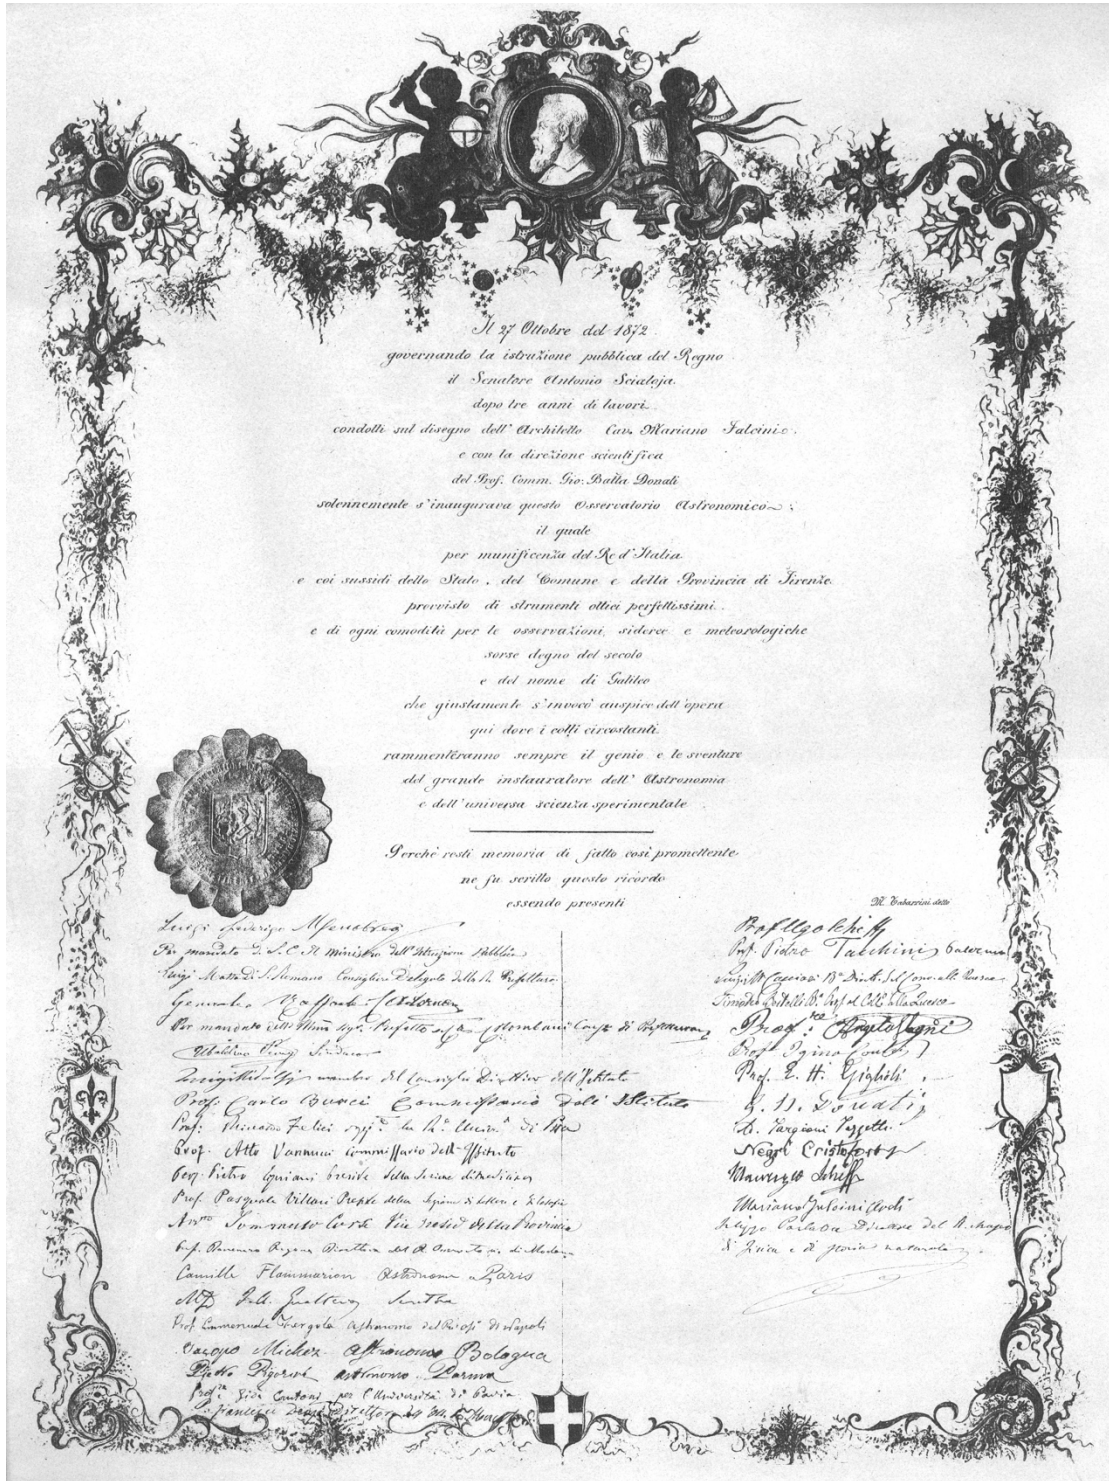 Il 27 Ottobre del 1872
governando la istruzione pubblica del Regno
il Senatore Antonio Scialoja
dopo tre anni di lavori
condotti sul disegno dell' Architetto Cav. Mariano Falcini
e con la direzione scientifica
del Prof. Comm. Gio: Batta Donati
solennemente s'inaugurava questo Osservatorio Astronomico;
il quale
per munificenza del Re d'Italia
e coi sussidi dello Stato, del Comune e della Provincia di Firenze
provvisto di strumenti ottici perfettissimi
e di ogni comodità per le osservazioni sideree e meteorologiche
sorse degno del secolo
e del nome di Galileo
che giustamente s'invocò auspice dell'opera
qui dove i colli circostanti
rammenteranno sempre il genio e le sventure
del grande instauratore dell' Astronomia
e dell'universa scienza sperimentale
Perchè resti memoria di fatto così promettente
ne fu scritto questo ricordo
essendo presenti
M. Tabarrini dettò
Luigi Federigo Menabrea
Per mandato di S. E. il ministro dell'Istruzione Pubblica
Luigi Consigliere Delegato della R. Prefettura
Per mandato Prefetto
Ubaldino Peruzzi Sindaco
membro del Consiglio Direttivo dell'Istituto
Prof: Carlo Commissario dell' Istituto
Prof: Felici di Pisa
Prof. Atto Vannucci Commissario dell'Istituto
Prof. Pietro Cipriani
Prof. Pasquale Villari della Sezione di Lettere e Filosofia
della Provincia
Prof. Ragona Direttore del R. Osservatorio di Modena
Camille Flammarion Astronome à Paris
Prof. Emmanuele Fergola astronomo del R. di Napoli
Jacopo Michez Astronomo Bologna
Pietro astronomo Parma
Cantoni per l'Università di Pavia
Prof Ugo Schiff
Prof. Pietro Tacchini Palermo
Prof. Angelo Vegni
Prof. Igino Cocchi
Prof. E. H. Giglioli
G. B. Donati
Ad. Targioni Tozzetti
Negri Cristoforo
Maurizio Schiff
Mariano Falcini Archo
Filippo Parlatore Direttore del R. Museo
di fisica e di storia naturale